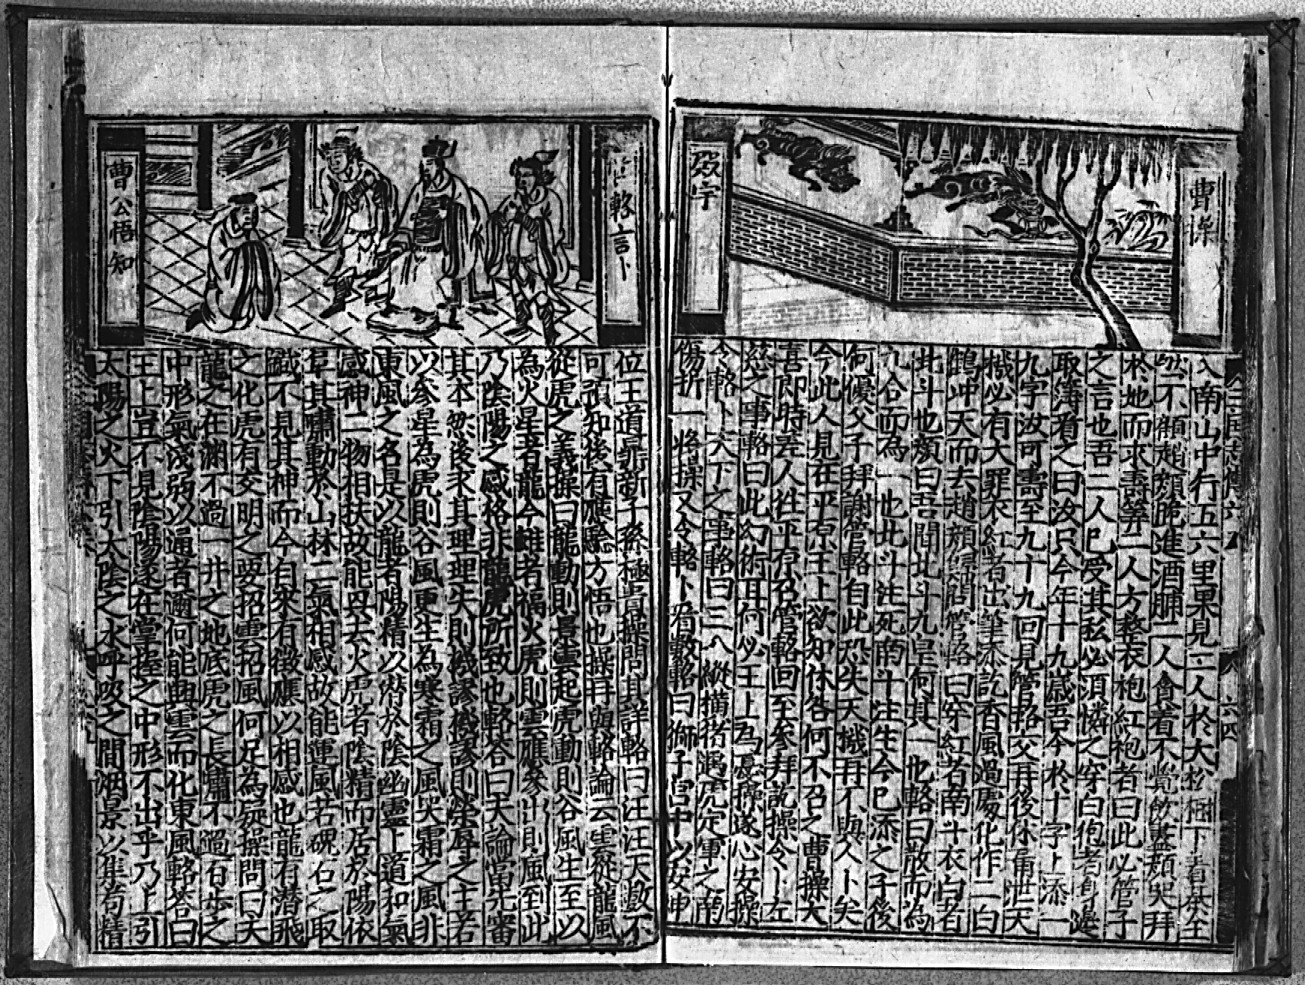 曹操
毀宇
入南山中行五六里果見二人於大松樹下着棊全
然不顧趙顏跪進酒脯二人貪着不覺飲盡顏哭拜
於地而求壽筭二人方整衣袍紅袍者曰此必管子
之言也吾二人已受其私必須憐之穿白袍者身邊
取簿看之曰汝只今年十九歲吾今於十字上添一
九字汝可壽至九十九回見管輅父再後休甫泄天
機必有大罪衣紅者出筆添訖香風過處化作二白
鶴冲天而去趙顏歸問管輅曰穿紅者南斗衣白者
北斗也顏曰吾聞北斗九皇何其一也輅曰散而為
九合而為一也此斗注死南斗注生今已添之子後
何優父子拜謝管輅自此恐失天機再不與人卜矣
今此人見在平原王上欲知休咎何不召之曹操大
喜即時差人往平原召管輅回至參拜訖操令卜左
慈之事輅曰此幻術耳何必王上為憂操遂心安操
令輅卜天下之事輅曰三八縱橫猪遇虎定軍之南
傷折一將操又令輅卜看數輅曰獅子宮中以安神
管輅言卜
曹公悟知
位王道鼎新子孫極貴操問其詳輅曰汪汪天數不
可預知後有應驗方悟也操再與輅論云雲從龍風
從虎之義操曰龍動則景雲起虎動則谷風生至以
為火星者龍今雖者福火虎則雲應參出則風至此
乃陰陽之感格非龍虎所致也輅答曰夫論當先審
其本然後求其理理失則機謬機謬則榮辱之主若
以參星為虎則谷風更生為寒霜之風災霜之風非
東風之名是以龍者陽精以潜於陰幽靈上道和氣
感神二物相扶故能興去火虎者陰精而居於陽依
阜其嘯動於山林二氣相感故能運風若硯石之取
鐵不見其神而今自來有徵應以相感也龍有潜飛
之化虎有文明之要招雲招風何足為疑操問曰夫
龍之在淵不過一井之地底虎之長嘯不過百步之
中形氣淺弱以通者邇何能興雲而化東風輅答曰
王上豈不見陰陽遂在掌握之中形不出乎乃上引
太陽之火下引太陰之水呼吸之間烟景以集苟精
三國志傳六
六四